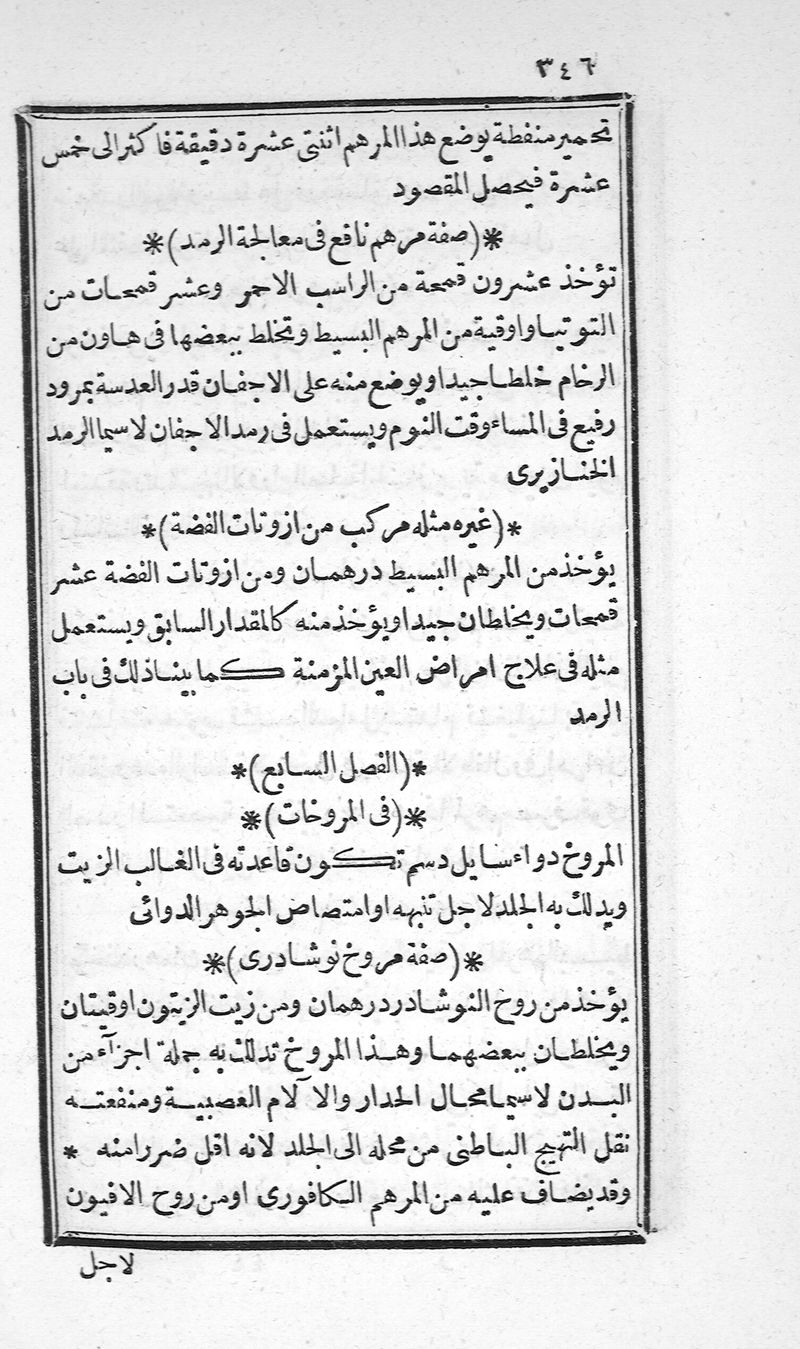 ٣٤٦
تحمير منفطة يوضع هذا المرهم اثنتى عشرة دقيقة فاكثر الى خمس
عشرة فيحصل المقصود
*(صفة مرهم نافع فى معالجة الرمد)*
تؤخذ عشرون قمحة من الراسب الاحمر وعشر قمحات من
التوتيا واوقية من المرهم البسيط وتخلط ببعضها فى هاون من
الرخام خلطا جيدا ويوضع منه على الاجفان قدر العدسة بمرود
رفيع فى المساء وقت النوم ويستعمل فى رمد الاجفان لاسيما الرمد
الخنازيرى
*(غيره مثله مركب من ازوتات الفضة)*
يؤخذ من المرهم البسيط درهمان ومن ازوتات الفضة عشر
قمحات ويخلطان جيدا ويؤخذ منه كالمقدار السابق ويستعمل
مثله فى علاج امراض العين المزمنة كما بينا ذلك فى باب
الرمد
*(الفصل السابع)*
*(فى المروخات)*
المروخ دواء سايل دسم تكون قاعدته فى الغالب الزيت
ويدلك به الجلد لاجل تنبهه او امتصاص الجوهر الدوائى
*(صفة مروخ نوشادرى)*
يؤخذ من روح النوشادر درهمان ومن زيت الزيتون اوقيتان
ويخلطان ببعضهما وهذا المروخ تدلك به جملة اجزآء من
البدن لاسيما محال الحدار والآلام العصبية ومنفعته
نقل التهيج الباطنى من محله الى الجلد لانه اقل ضررا منه *
وقد يضاف عليه من المرهم الكافورى او من روح الافيون
لاجل